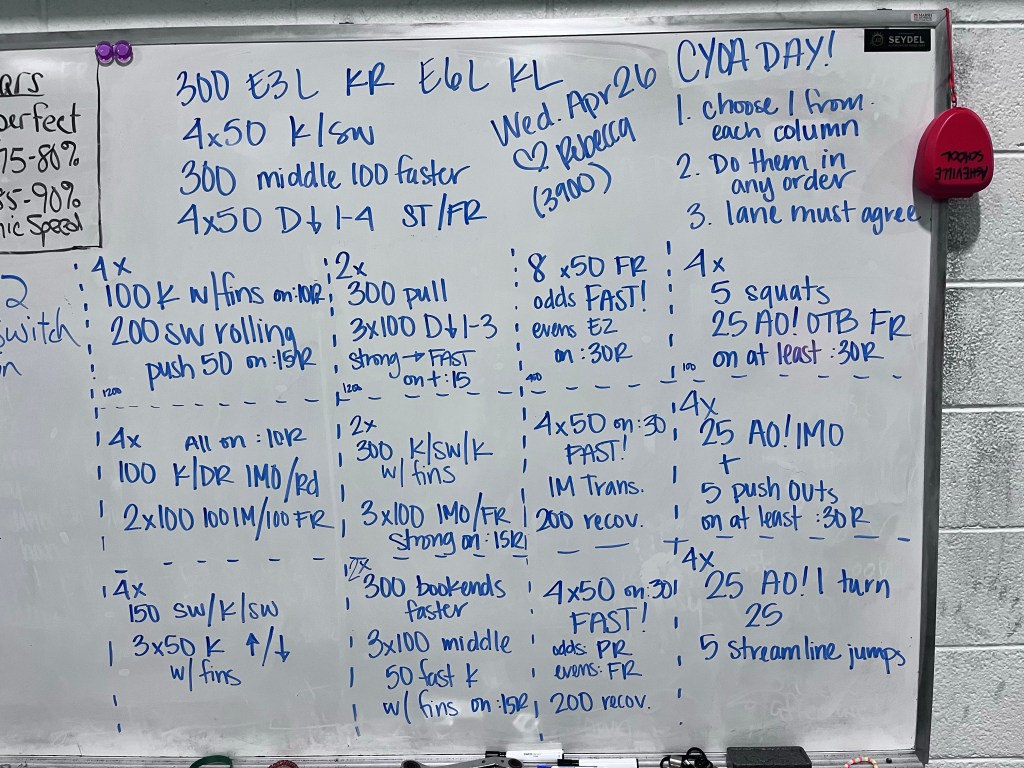 perfect
75-80%
85-90%
Speed
2
switch
300 E3L KR E6L KL
4x50 K/SW
300 middle 100 faster
4x50 D↓ 1-4 ST/FR
Wed. Apr 26
♡ Rebecca
(3900)
SEYDEL
CYOA DAY!
1. choose 1 from
each column
2. Do them in
any order
3. lane must agree
ASHEVILLE
SCHOOL
4x
100K w/fins on :10R
200 SW rolling
push 50 on :15R
1200
2x
300 pull
3x100 D↓ 1-3
strong → FAST
on + :15
1200
8 x50 FR
odds FAST!
evens EZ
on :30R
400
4x
5 squats
25 AO! OTB FR
on at least :30R
100
4x All on :10R
100 K/DR IMO/Rd
2x100 100 IM/100 FR
2x
300 K/SW/K
w/ fins
3x100 IMO/FR
strong on :15R
4x50 on :30
FAST!
IM Trans.
200 recov.
4x
25 AO! IMO
+
5 push outs
on at least :30R
4x
150 SW/K/SW
3x50 K ↑/↓
w/ fins
2x
300 bookends
faster
3x100 middle
50 fast K
w/ fins on :15R
4x50 on :30
FAST!
odds: PR
evens: FR
200 recov.
4x
25 AO! 1 turn
25
5 streamline jumps